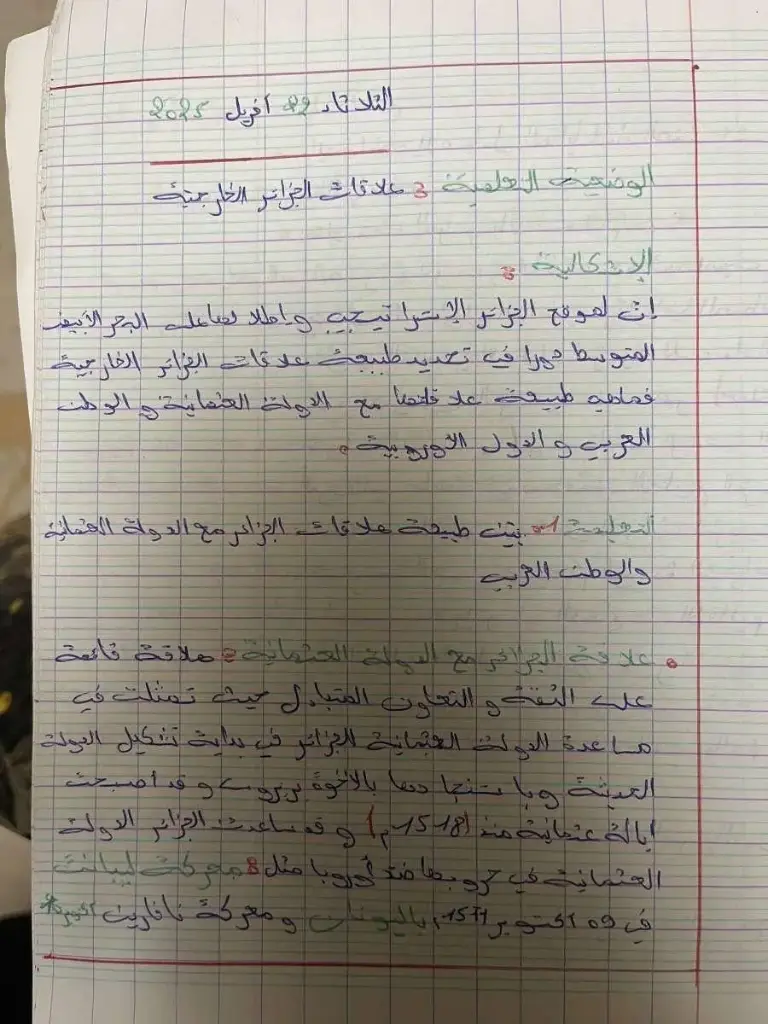 الثلاثاء 22 أفريل 2025
الوضعية التعلمية 3 علاقات الجزائر الخارجية
الإشكالية :
إن لموقع الجزائر الإستراتيجي وإطلالها على البحر الأبيض
المتوسط دورا في تحديد طبيعة علاقات الجزائر الخارجية
فماهي طبيعة علاقاتها مع الدولة العثمانية والوطن
العربي والدول الأوروبية.
التعليمة 1- بيّن طبيعة علاقات الجزائر مع الدولة العثمانية
والوطن العربي
• علاقة الجزائر مع الدولة العثمانية : علاقة قائمة
على الثقة والتعاون المتبادل حيث تمثلت في
مساعدة الدولة العثمانية الجزائر في بداية تشكيل الدولة
الحديثة وباستنجادها بالاخوة بربروس وقد اصبحت
إيالة عثمانية منذ (1518م) وقد ساعدت الجزائر الدولة
العثمانية في حروبها ضد أوروبا مثل : معركة ليبانت
في 09 اكتوبر 1571م باليونان ومعركة نافارين اكتوبر